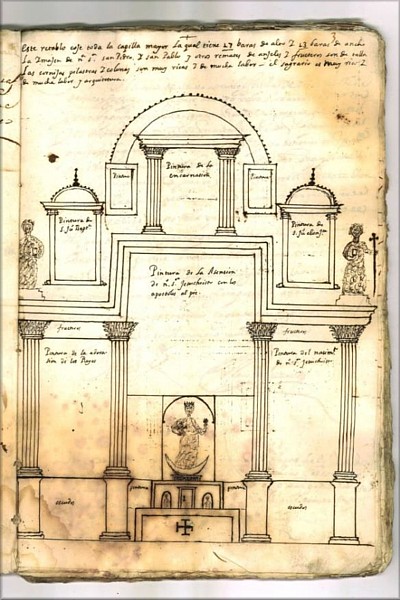 Este retablo coje toda la capilla mayor La qual tiene 27 baras de alto I 23 baras de ancho
La Imajen de nª sª san Pedro, I san Pablo y otros remates de anjeles I fruteros son de talla
Las cornijas pilastras I colunas son muy ricas I de mucha labor el sagrario es muy rico I
de mucha labor y arquitectura
Pintura de la
encarnacion
Pintura
Pintura
Pintura de
S. Juº Baptª
Pintura de
S. Juº
Pintura de La Asencion
de nº sº Jesuchristo con los
apostoles al pie
fruteros
fruteros
Pintura de la adora
sion de los Reyes
Pintura del nasimiº
de nº sº Jesuchristo
escudos
escudos